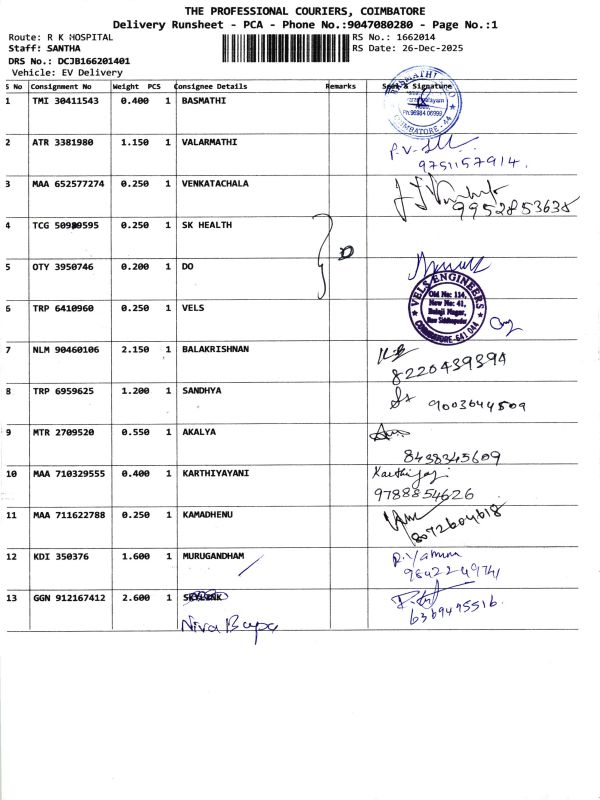 THE PROFESSIONAL COURIERS, COIMBATORE
Delivery Runsheet - PCA - Phone No.:9047080280 - Page No.:1
Route: R K HOSPITAL RS No.: 1662014
Staff: SANTHA RS Date: 26-Dec-2025
DRS No.: DCJB166201401
Vehicle: EV Delivery
S No Consignment No Weight PCS Consignee Details Remarks Seal & Signature
1 TMI 30411543 0.400 1 BASMATHI
COIMBATORE - 44
2 ATR 3381980 1.150 1 VALARMATHI
9751157914.
3 MAA 652577274 0.250 1 VENKATACHALA
9952853638
4 TCG 50989595 0.250 1 SK HEALTH
D
5 OTY 3950746 0.200 1 DO
VELS ENGINEERS
Old No: 114,
New No: 41,
Balaji Nagar,
COIMBATORE-641 044
6 TRP 6410960 0.250 1 VELS
7 NLM 90460106 2.150 1 BALAKRISHNAN
8220439394
8 TRP 6959625 1.200 1 SANDHYA
9003644509
9 MTR 2709520 0.550 1 AKALYA
8438345609
10 MAA 710329555 0.400 1 KARTHIYAYANI
9788854626
11 MAA 711622788 0.250 1 KAMADHENU
8072604618
12 KDI 350376 1.600 1 MURUGANDHAM
9842249741
13 GGN 912167412 2.600 1 SKYLINK
6369495516.
Niva Bupa